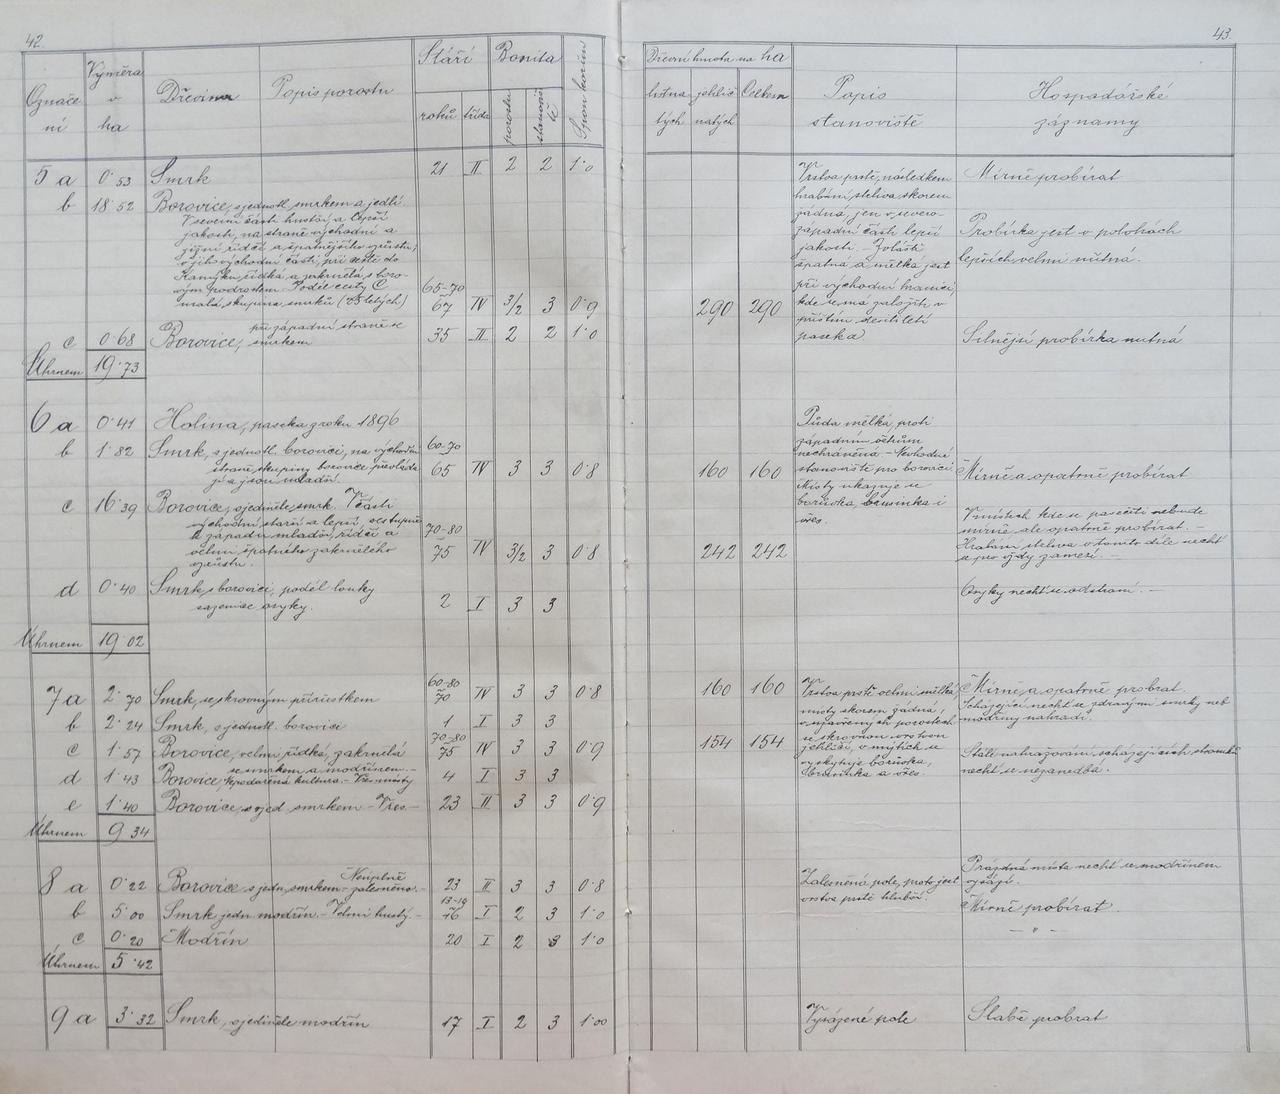 42
43
Označení
Výměra v ha
Dřevina
Popis porostu
Stáří
Bonita
roků
třída
porostu
stanoviště
Dřevní hmota na ha
listnatých
jehličnatých
Celkem
Popis stanoviště
Hospodářské záznamy
5 a 0·53 Smrk 21 II 2 2 1·0
Mírně probírat
b 18·52 Borovice, sjednotl. smrkem a jedlí
V severní části hustší, a lepší
jakosti, na straně východní a
jižní řidčí a špatnějšího vzrůstu,
v jihovýchodní části, při cestě do
Kamýku řídká a zakrnělá s boro-
vým podrostem. Podél cesty C
malá skupina smrků (25 letých)
65-70
67 IV 3/2 3 0·9 290 290
Vrstva prstě, následkem
hrabání steliva skorem
žádná, jen v severo-
západní části lepší
jakosti. - Zvláště
špatná a mělká jest
při východní hranici,
kde se má založiti v
příštím desítiletí
paseka
Probírka jest v polohách
lepších velmi nutná.
c 0·68 Borovice, při západní straně se
smrkem 35 II 2 2 1·0
Silnější probírka nutná
Úhrnem 19·73
6 a 0·41 Holina, paseka z roku 1896
b 1·82 Smrk, sjednotl. borovicí, na východní
straně skupiny borovice převládá
jí a jsou mladší.
60-70
65 IV 3 3 0·8 160 160
Půda mělká, proti
západním větrům
nechráněná - Nevhodné
stanoviště pro borovici
Místy ukazuje se
borůvka, brusinka i
vřes.
Mírně a opatrně probírat
c 16·39 Borovice, ojediněle smrk. V části
východní starší a lepší, sestupně
k západu mladší, řidčí a
velmi špatného zakrnělého
vzrůstu.
70-80
75 IV 3/2 3 0·8 242 242
V místech kde se pasečiti nebude
mírně ale opatrně probírat. -
Hrabání steliva v tomto díle nechť
se pro vždy zamezí. -
d 0·40 Smrk s borovicí, podél louky
osyky.
2 I 3 3
Osyky nechť se odstraní. -
Úhrnem 19·02
7 a 2·70 Smrk, se skrovným přírůstkem
60-80
70 IV 3 3 0·8 160 160
Vrstva prstě velmi mělká,
místy skorem žádná,
v uzavřených porostech
se skrovnou vrstvou
jehličí, v mýtích se
vyskytuje borůvka,
brusinka a vřes.
Mírně, a opatrně probrat.
Scházející nechť se zdravými smrky neb
modříny nahradí.
b 2·24 Smrk, sjednotl. borovice 1 I 3 3
70-80
c 1·57 Borovice, velmi řídká, zakrnělá 75 IV 3 3 0·9 154 154
Stálé nahražování scházejících stromků
nechť se nezanedbá.
d 1·43 Borovice, se smrkem a modřínem. -
Nepodařená kultura. - Vřes místy 4 I 3 3
e 1·40 Borovice, s ojed. smrkem - Vřes. - 23 II 3 3 0·9
Úhrnem 9·34
8 a 0·22 Borovice s jedn. smrkem - Neúplně
zalesněno. - 23 II 3 3 0·8
Zalesněná pole, proto jest
vrstva prstě hlubší.
Prázdná místa nechť se modřínem
vysází.
13-19
b 5·00 Smrk jedn. modřín. - Velmi hustý. - 16 I 2 3 1·0
Mírně probírat.
c 0·20 Modřín 20 I 2 3 1·0
- " -
Úhrnem 5·42
9 a 3·32 Smrk, ojediněle modřín 17 I 2 3 1·00
Vysázené pole
Slabě probrat